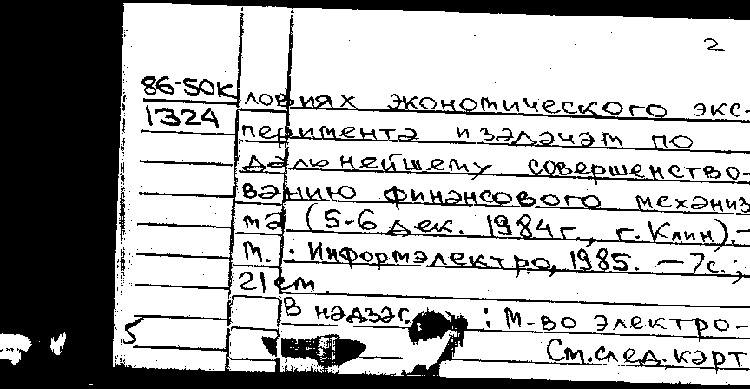 2
86-50к
1324
ловиях экономического экс-
перимента и задачам по
дальнейшему совершенство-
ванию финансового механиз
ма (5-6 дек. 1984г., г. Клин).-
М. : Информэлектро, 1985. - 7с.;
21см.
В надзаг. : М-во электро-
5
См.след.карт